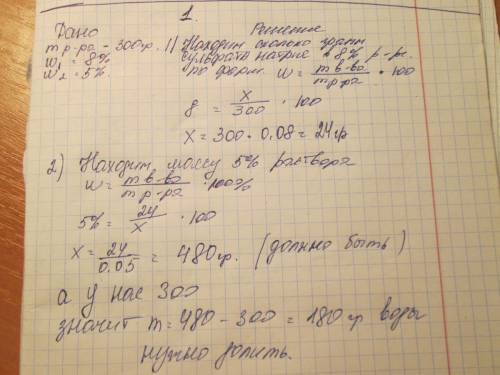 1
Дано
Решение
m р-ра - 300 гр.
1) Находим сколько грамм
w₁ = 8%
сульфата натрия в 8% р-ре
w₂ = 5%
по форм. w = m в-ва / m р-ра · 100
8 = x / 300 · 100
x = 300 · 0,08 = 24 гр
2) Находим массу 5% раствора
w = m в-ва / m р-ра · 100%
5% = 24 / x · 100
x = 24 / 0.05 = 480 гр. (должно быть)
а у нас 300
значит m = 480 - 300 = 180 гр воды
нужно долить.